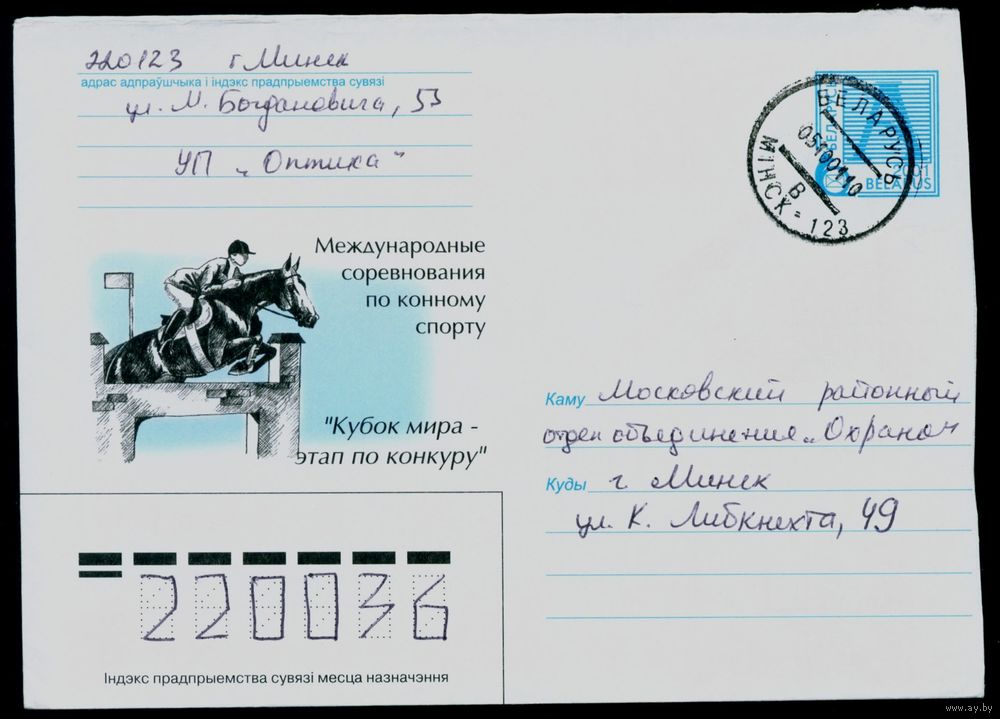 220123 г Минск
адрас адпраўшчыка і індэкс прадпрыемства сувязі
ул. М. Богдановича, 53
УП „Оптика"
БЕЛАРУСЬ
МІНСК - 123
В
2001
BELARUS
Международные
соревнования
по конному
спорту
"Кубок мира -
этап по конкуру"
Каму Московский районный
отдел объединения „Охрана"
Куды г Минск
ул. К. Либкнехта, 49
220036
Індэкс прадпрыемства сувязі месца назначэння
www.ay.by